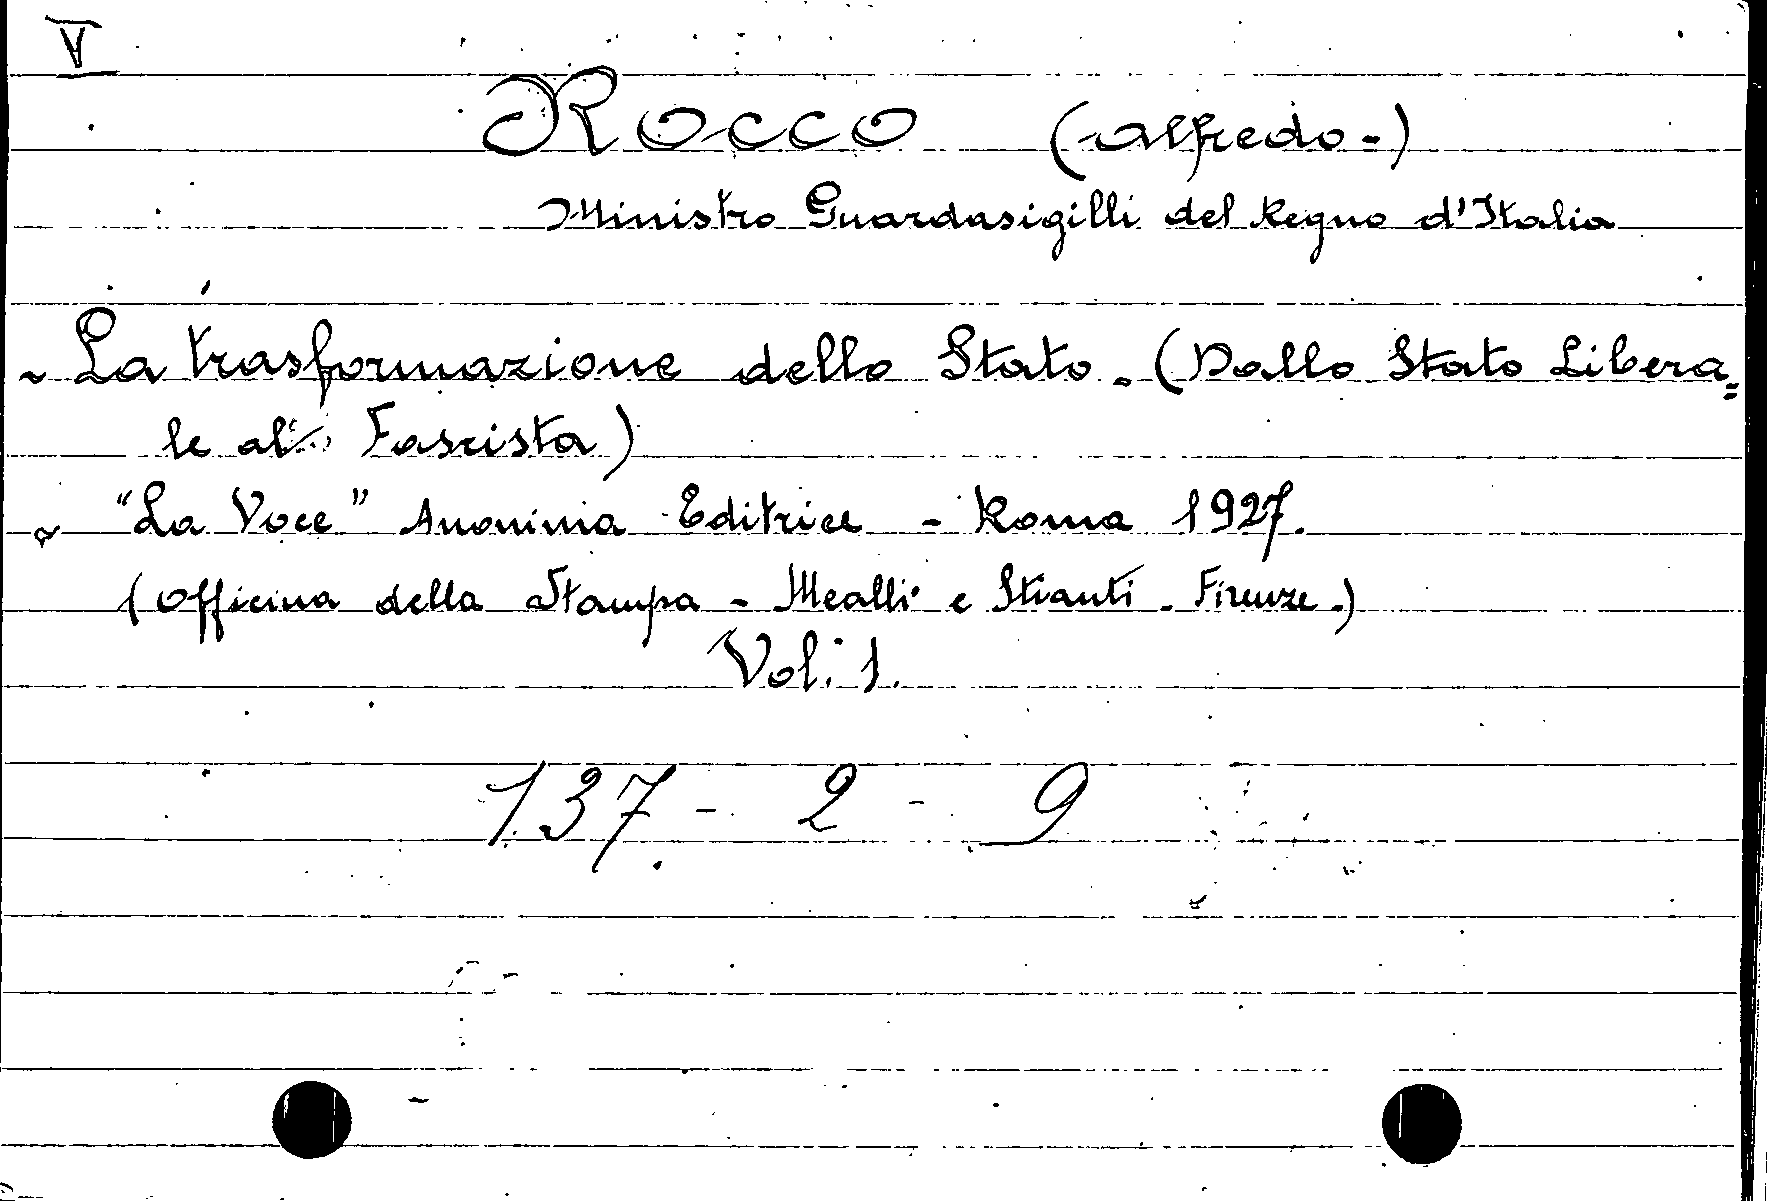 V
Rocco (Alfredo-)
Ministro Guardasigilli del Regno d'Italia
- La trasformazione dello Stato. (Dallo Stato Libera=
le al Fascista)
- "La Voce" Anonima Editrice - Roma 1927.
(Officina della Stampa - Mealli e Stianti - Firenze.)
Vol: 1.
137 - 2 - 9